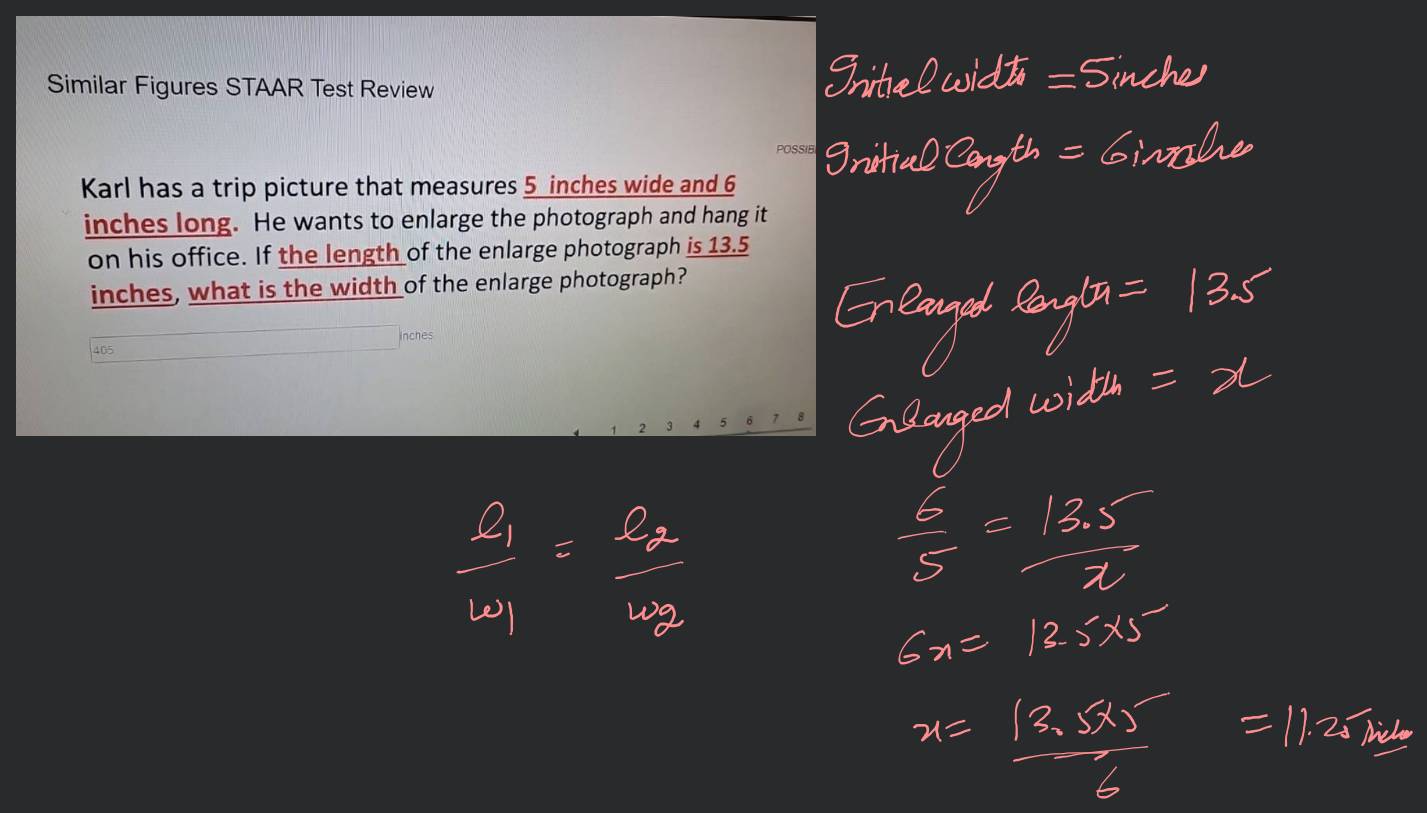 Similar Figures STAAR Test Review
POSSIB
Karl has a trip picture that measures 5 inches wide and 6
inches long. He wants to enlarge the photograph and hang it
on his office. If the length of the enlarge photograph is 13.5
inches, what is the width of the enlarge photograph?
405 inches
1 2 3 4 5 6 7 8
Initial width = 5 inches
Initial length = 6 inches
Enlarged length = 13.5
Enlarged width = x
l1/w1 = l2/w2
6/5 = 13.5/x
6x = 13.5×5
x = 13.5×5/6 = 11.25 inches